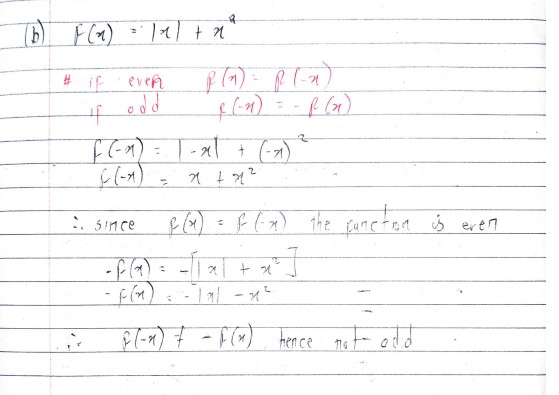 (b) f(x) = |x| + x²
# if even f(x) = f(-x)
if odd f(-x) = - f(x)
f(-x) = |-x| + (-x)²
f(-x) = x + x²
∴ since f(x) = f(-x) the function is even
-f(x) = -[|x| + x²]
-f(x) = -|x| - x²
∴ f(-x) ≠ - f(x) hence not odd